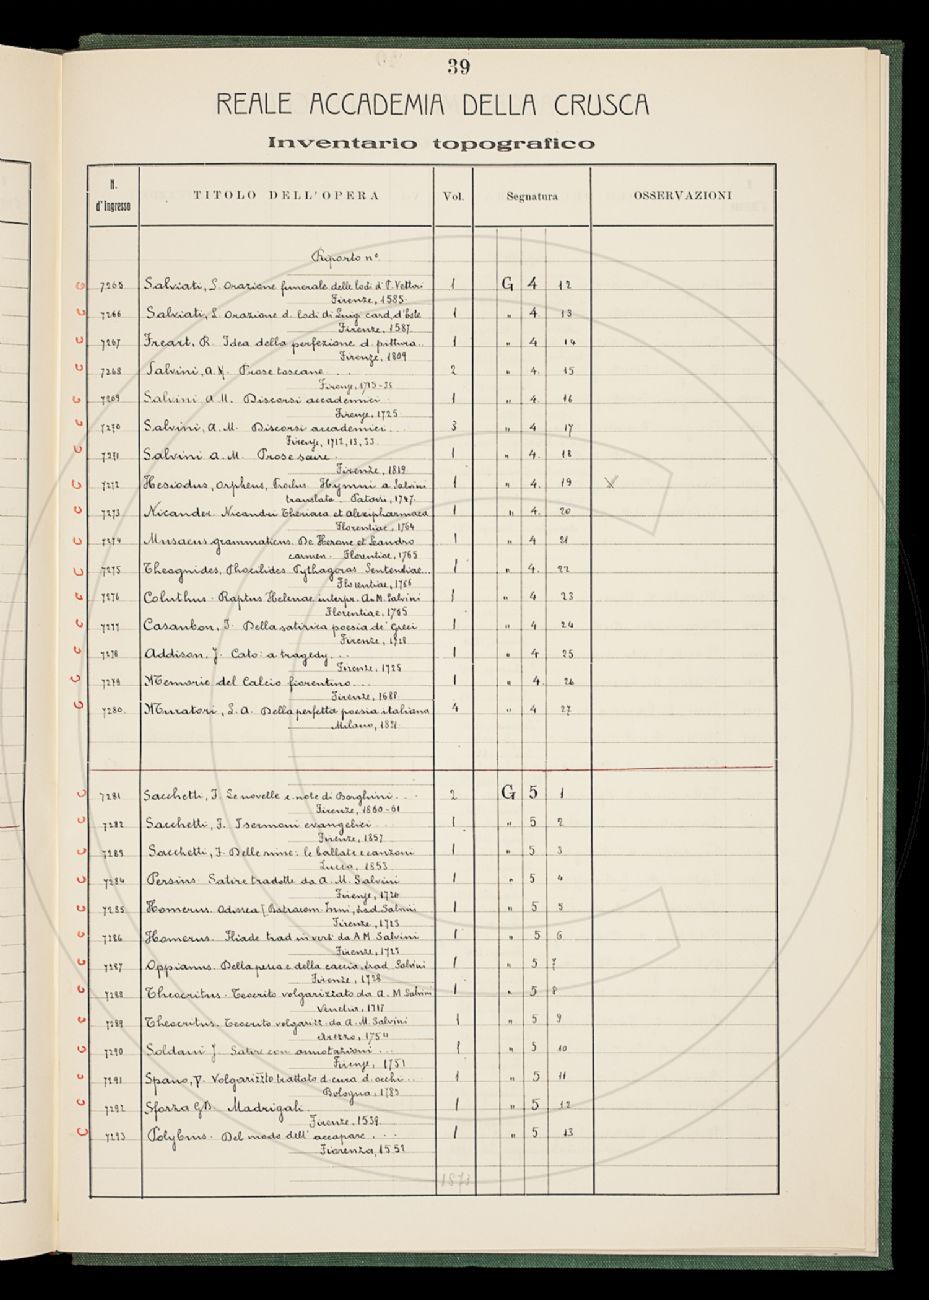 39
REALE ACCADEMIA DELLA CRUSCA
Inventario topografico
N. d'Ingresso TITOLO DELL'OPERA Vol. Segnatura OSSERVAZIONI
Riporto n°
7265 Salviati, L. Orazione funerale delle lodi d' P. Vettori 1 G 4 12
Firenze, 1585.
7266 Salviati, L. Orazione d. lodi di Luigi card. d'Este 1 " 4 13
Firenze, 1587.
7267 Freart, R. Idea della perfezione d. pittura.. 1 " 4 14
Firenze, 1809
7268 Salvini, A. M. Prose toscane . . . 2 " 4. 15
Firenze, 1715-35
7269 Salvini, A. M. Discorsi accademici 1 " 4. 16
Firenze, 1725
7270 Salvini, A. M. Discorsi accademici . . . 3 " 4 17
Firenze, 1712, 13, 33.
7271 Salvini A. M. Prose sacre . 1 " 4. 18
Firenze, 1819
7272 Hesiodus, Orpheus, Proclus. Hymni a Salvini 1 " 4. 19 X
translata. Patavi, 1747.
7273 Nicander. Nicandri Theriaca et alexipharmaca 1 " 4. 20
Florentiae, 1764
7274 Musaeus grammaticus. De Herone et Leandro 1 " 4 21
carmen. Florentiae, 1765
7275 Theognides, Phocilides Pythagoras Sentendiae... 1 " 4. 22
Florentiae, 1766
7276 Coluthus. Raptus Helenae interpr. A. M. Salvini 1 " 4 23
Florentiae, 1765
7277 Casaubon, I. Della satirica poesia de' Greci 1 " 4 24
Firenze, 1728
7278 Addison, J. Cato: a tragedy. . . 1 " 4 25
Firenze, 1725
7279 Memorie del Calcio fiorentino . . . 1 " 4. 26
Firenze, 1688
7280. Muratori, L. A. Della perfetta poesia italiana 4 " 4 27
Milano, 1821
7281 Sacchetti, F. Le novelle c. note di Borghini . . . 2 G 5 1
Firenze, 1860-61
7282 Sacchetti, F. I sermoni evangelici 1 " 5 2
Firenze, 1857
7283 Sacchetti, F. Delle rime: le ballate e canzoni 1 " 5 3
Lucca, 1853
7284 Persius. Satire tradotte da A. M. Salvini 1 " 5 4
Firenze, 1726
7285 Homerus. Odissea [Batracom. Inni, trad. Salvini 1 " 5 5
Firenze, 1723
7286 Homerus. Iliade trad in versi da A M Salvini 1 " 5 6
Firenze, 1723
7287 Oppianus. Della pesca e della caccia, trad. Salvini 1 " 5 7
Firenze, 1728
7288 Theocritus. Teocrito volgarizzato da A. M Salvini 1 " 5 8
Venetia, 1717
7289 Theocritus. Teocrito volgarizz. da A. M. Salvini 1 " 5 9
Arezzo, 1754
7290 Soldani J. Satire con annotazioni . . . 1 " 5 10
Firenze, 1751
7291 Spano, P. Volgarizz.to trattato d. cura d. occhi . . 1 " 5 11
Bologna, 1783
7292 Sforza G.B. Madrigali 1 " 5 12
Firenze, 1559.
7293 Polybius. Del modo dell' accapare . . . 1 " 5 13
Fiorenza, 1552